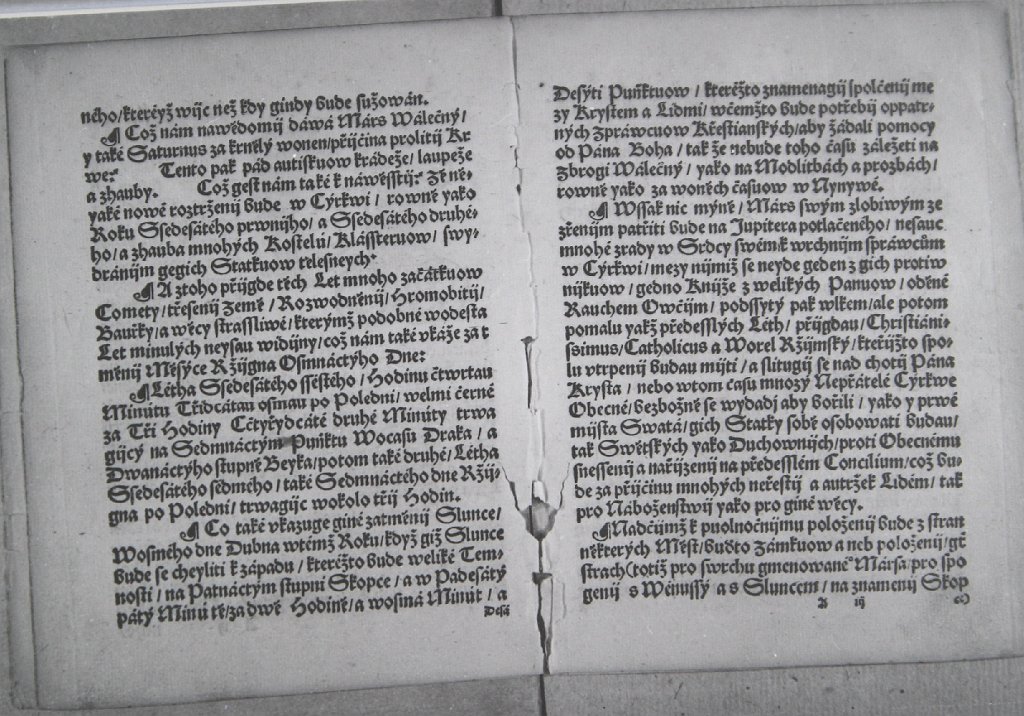 ného/kterýž wijc než kdy gindy bude sužowán.
¶ Což nám nawědomij dáwá Márs Wálečný/
y také Saturnus za krnělý wonen/přijčina prolitij Kr
we: Tento pak pád autiskuow krádeže/laupeže
a zhauby. Což gest nám také k náwěsstij: že ně-
yaké nowé roztrženij bude w Cýrkwi / rowně yako
Roku Ssedesátého prwnijho/ a Ssedesátého druhé-
ho/a zhauba mnohých Kostelů/Klássteruow/ swy-
dránijm gegich Statkuow tělesneych.
¶ A ztoho přijgde těch Let mnoho začátkuow
Comety/třesenij Země/Rozwodněnij/Hromobitij/
Bauřky/a wěcy strassliwé/kterýmž podobné wodesta
Let minulých neysau widijny/což nám také vkáže zat
měnij Měsýce Ržijgna Osmnáctýho Dne:
¶ Létha Ssedesátého ssestého / Hodinu čtwrtau
Minutu Třidcátau osmau po Poledni/welmi černé
za Tři Hodiny Cčtyřydcáté druhé Minuty trwa
gijcý na Sedmnáctým Puňktu Wocasu Draka / a
Dwanáctýho stupně Beyka/potom také druhé/Létha
Ssedesátého sedmého / také Sedmnáctého dne Ržij-
gna po Poledni/trwagijc wokolo třij Hodin.
¶ Co také vkazuge giné zatměnij Slunce/
Wosmého dne Dubna wtémž Roku/když giž Slunce
bude se cheyliti k západu / kteréžto bude weliké Tem-
nosti / na Patnáctým stupni Skopce / a w Padesátý
pátý Minutě/za dwě Hodině/a wosmá Minut / a
Desý
Desýti Puňktuow / kteréžto znamenagij spolčenij me
zy Krystem a Lidmi/ wčemžto bude potřebij oppatr-
ných Zpráwcuow Křestianských/aby žádali pomocy
od Pána Boha / tak že nebude toho času záležeti na
Zbrogi Wálečný / yako na Modlitbách a prozbách/
rowně yako za woněch časuow w Nynywé.
¶ Wssak nic mýně / Márs swým zlobiwým ze
zřenijm patřiti bude na Jupitera potlačeného/ nesauc
mnohé zrady w Srdcy swém k wrchnijm spráwcům
w Cýrkwi/mezy nijmiž se neyde geden z gich protiw
nijkuow/ gedno Knijže z welikých Panuow/ oděné
Rauchem Owčijm/ podssytý pak wlkem/ale potom
pomalu yakž předesslých Léth/ přijgdau/Christiani-
ssimus/Catholicus a Worel Ržijmský/kteřijžto spo-
lu vtrpenij budau mijti/ a slitugij se nad chotij Pána
Krysta / nebo wtom času mnozý Nepřátelé Cýrkwe
Obecné/bezbožně se wydadj aby bořili / yako y prwé
mijsta Swatá/gich Statky sobě osobowati budau/
tak Swětských yako Duchownijch/proti Obecnému
snessenij a nařijzenij na předesslém Concilium/což bu-
de za přijčinu mnohých neřestij a autržek Lidem/ tak
pro Náboženstwij yako pro giné wěcy.
¶ Nadčijmž k puolnočnijmu položenij bude z stran
některých Měst/buďto Zámkuow a neb položenij/gt
strach(totiž pro swrchu gmenowané Mársa/pro spo
genij s Wěnussý a s Sluncem/ na znamenij Skop
A iij ce)